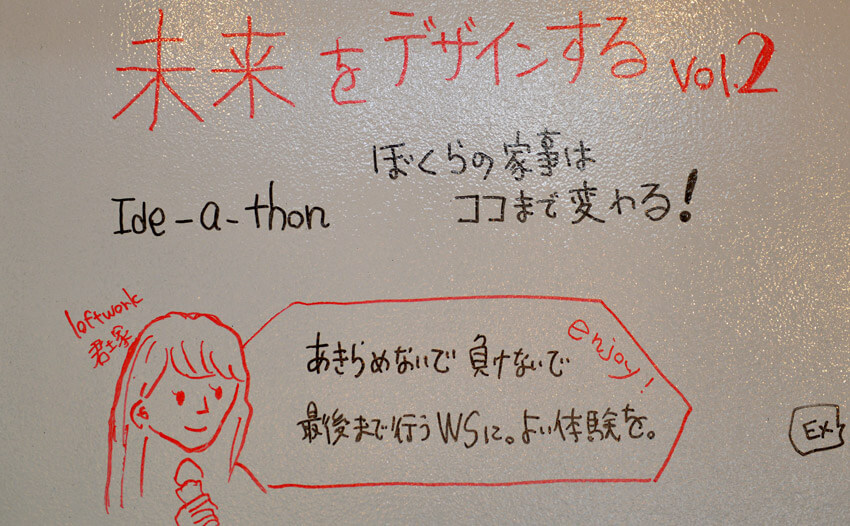 未来をデザインする vol.2
ぼくらの家事は
ココまで変わる!
Ide-a-thon
loftwork
君塚
enjoy!
あきらめないで 負けないで
最後まで行うWSに。よい体験を。